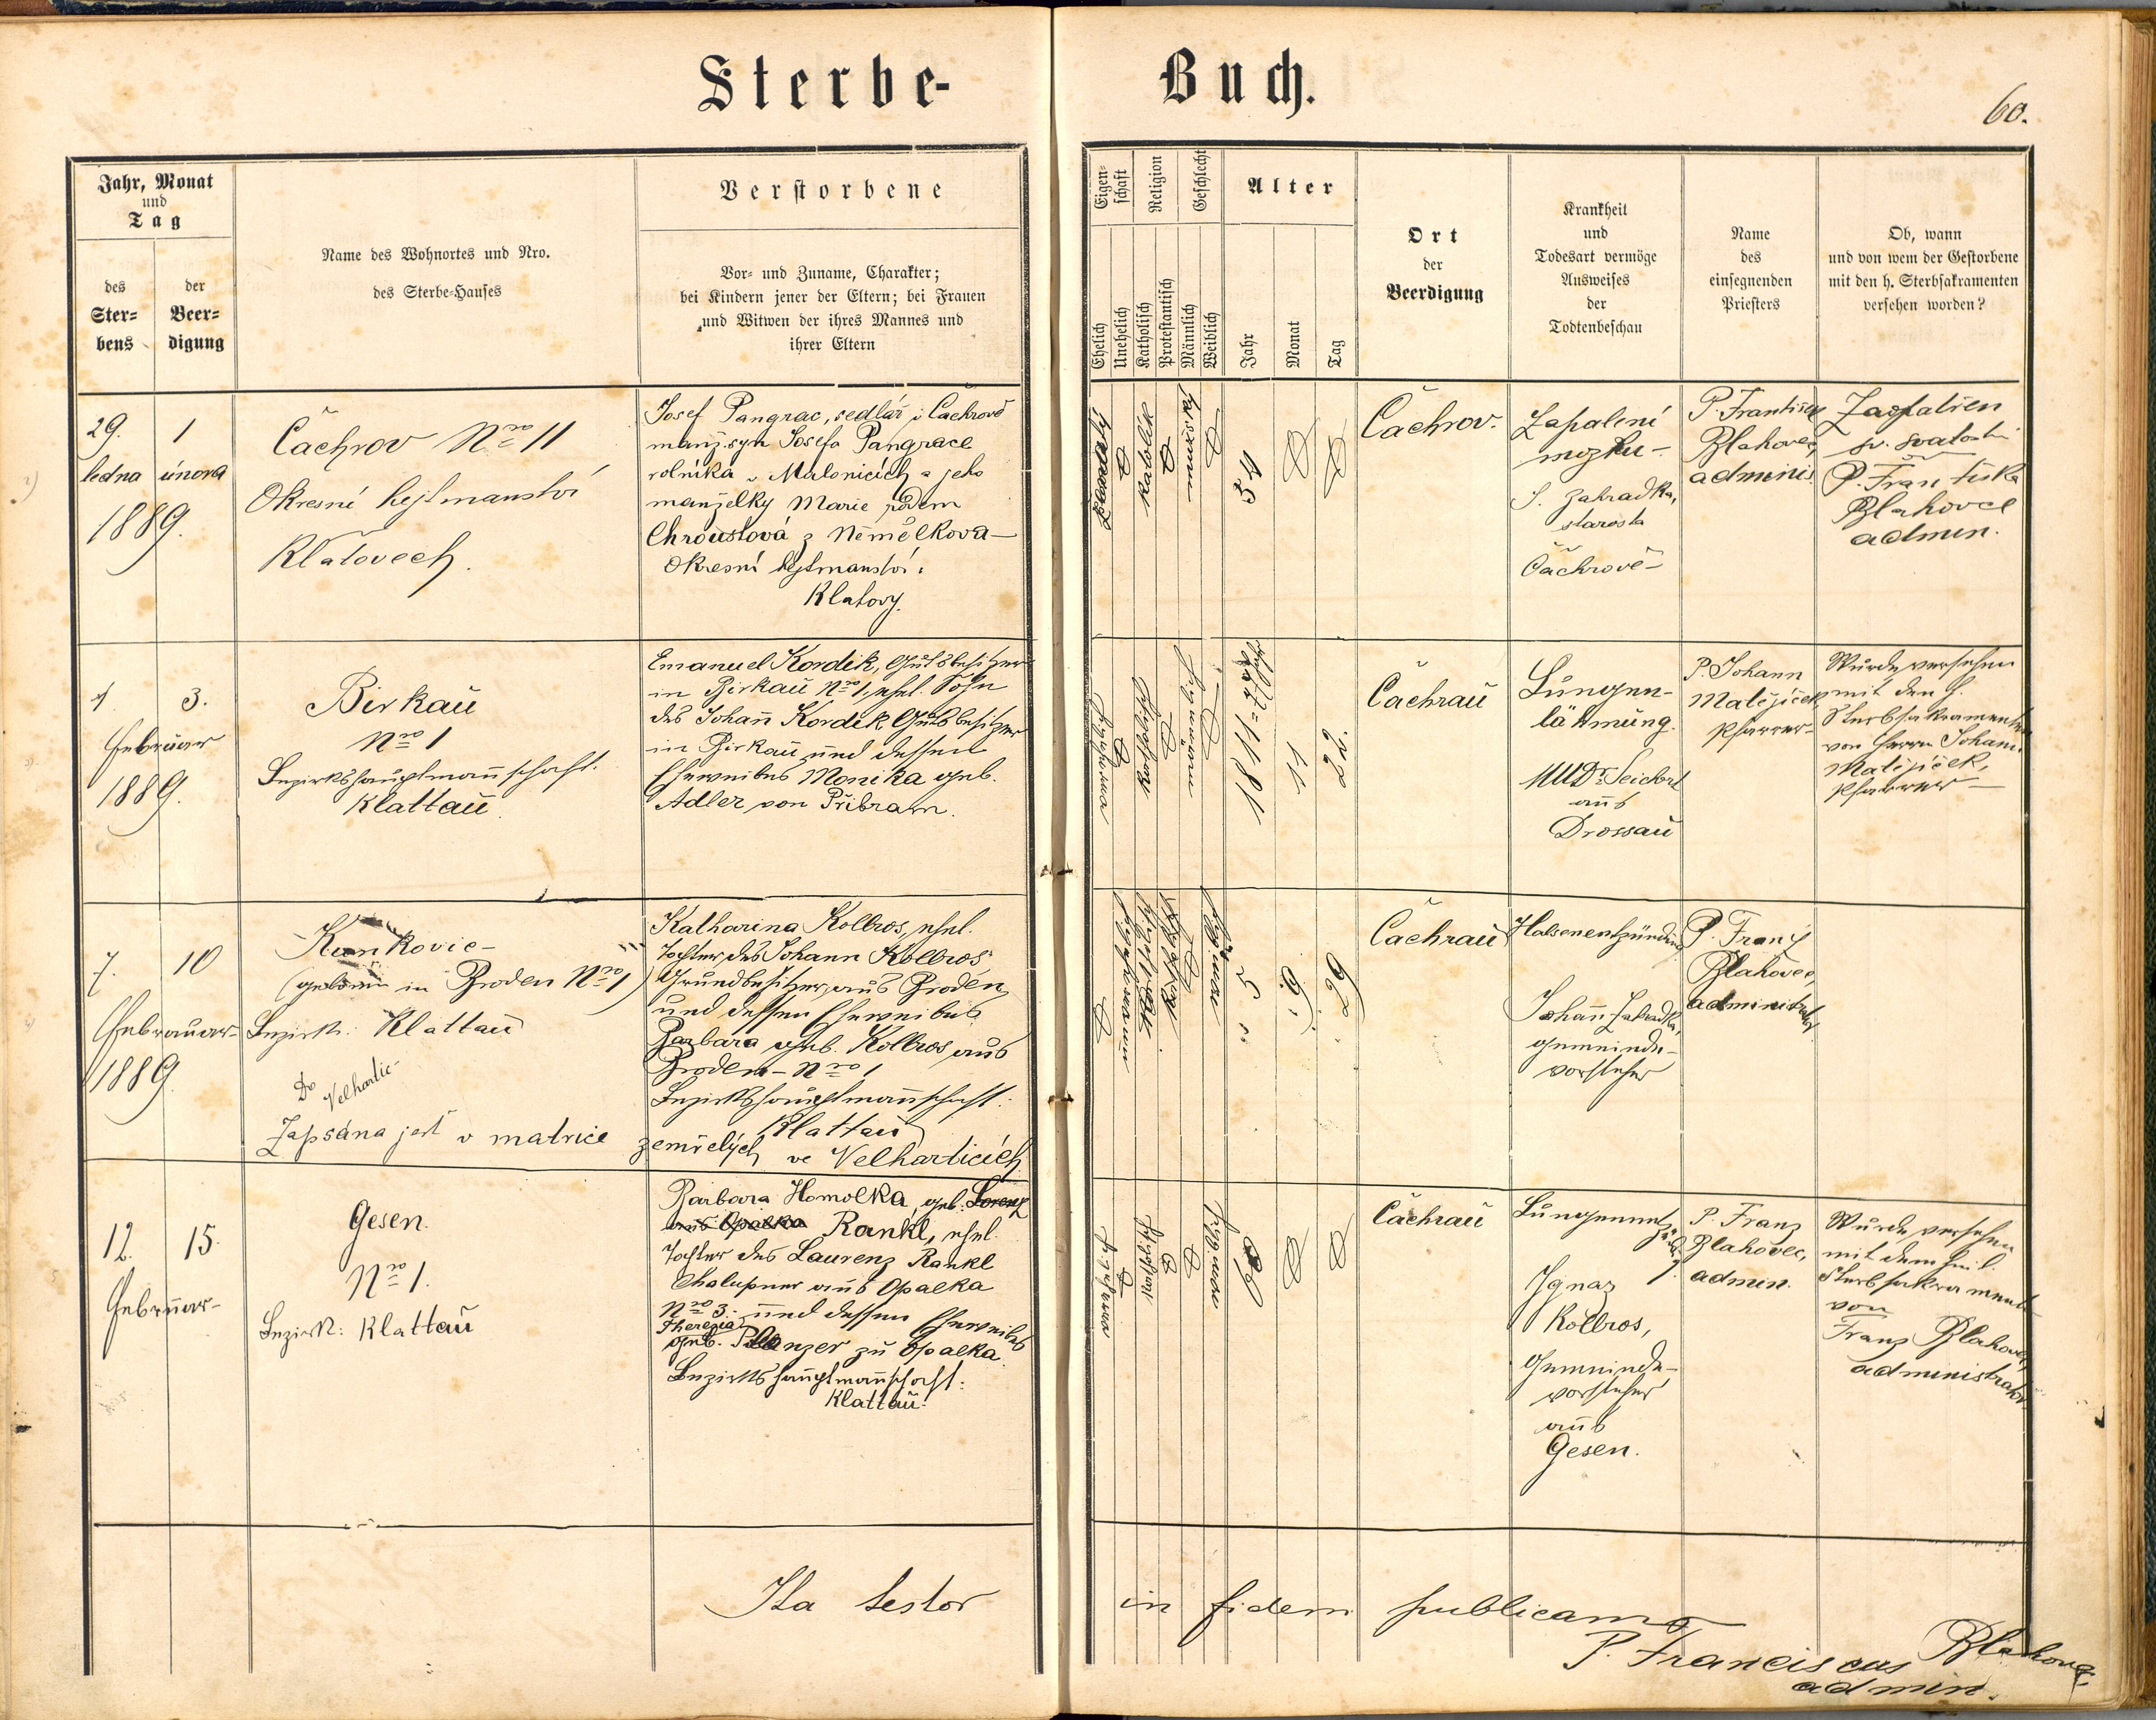 Sterbe-
Buch.
60.
Jahr, Monat
und
Tag
des
Ster=
bens
der
Beer=
digung
Name des Wohnortes und Nro.
des Sterbe=Hauses
Verstorbene
Vor= und Zuname, Charakter;
bei Kindern jener der Eltern; bei Frauen
und Witwen der ihres Mannes und
ihrer Eltern
Eigen=
schaft
Religion
Geschlecht
Alter
Ehelich
Unehelich
Katholisch
Protestantisch
Männlich
Weiblich
Jahr
Monat
Tag
Ort
der
Beerdigung
Krankheit
und
Todesart vermöge
Ausweises
der
Todtenbeschau
Name
des
einsegnenden
Priesters
Ob, wann
und von wem der Gestorbene
mit den h. Sterbsakramenten
versehen worden?
29.
ledna
1889.
1
února
Čachrov Nro 11
Okresní hejtmanství
Klatovech.
Josef Pangrac, sedlář v Čachrově
manž. syn Josefa Pangrace
rolníka v Malonicích a jeho
manželky Marie rodem
Chroustová z Němělkova
Okresní hejtmanství:
Klatovy.
54
Čachrov.
Zapalení
mozku
J. Zahradka,
starosta
Čachrově
P. František
Blahovec,
adminis.
Zaopatřen
sv. svatostmi
P. Františka
Blahovce
admin.
1.
Februar
1889.
3.
Birkau
Nro 1
Bezirkshauptmannschaft.
Klattau
Emanuel Kordik, Gutsbesitzer
in Birkau Nro 1, ehel. Sohn
des Johann Kordik Gutsbesitzer
in Birkau und dessen
Eheweibes Monika geb.
Adler von Přibram.
1811 = 77 Jahre
11
22.
Čachrau
Lungen-
lähmung.
MUDr. Seichert
aus
Drossau
P. Johann
Matějíček
Pfarrer
Wurde versehen
mit den h.
Sterbsakramenten
von Herrn Johann
Matějíček,
Pfarrer
7.
Februar
1889.
10
Kunkovic
(geboren in Broden Nro 1)
Bezirk: Klattau
Do
Velhartic
Zapsána jest v matrice zemřelých ve Velharticích
Katharina Kollros, ehel.
Tochter des Johann Kollros
Grundbesitzer aus Broden
und dessen Eheweibes
Barbara geb. Kollros aus
Broden Nro 1
Bezirkshauptmannschaft:
Klattau
5
9
29
Čachrau
Halsenentzündung
Johann Zahradka,
Gemeinde-
vorsteher
P. Franz
Blahovec,
administrator
12.
Februar
15.
Gesen.
Nro 1.
Bezirk: Klattau
Barbara Homolka, geb. Lorenz
aus Opalka Rankl, ehel.
Tochter des Laurenz Rankl
Chalupner aus Opalka
Nro 3. und dessen Eheweibes
Theresia
geb. Planzer zu Opalka
Bezirkshauptmannschaft:
Klattau.
Čachrau
Lungenentzündung
Ignaz
Kollros,
Gemeinde-
vorsteher
aus
Gesen.
P. Franz
Blahovec,
admin.
Wurde versehen
mit dem heil.
Sterbsakramente
von
Franz Blahovec,
administrator
Ita testor in fidem publicam
P. Franciscus Blahovec
admin.